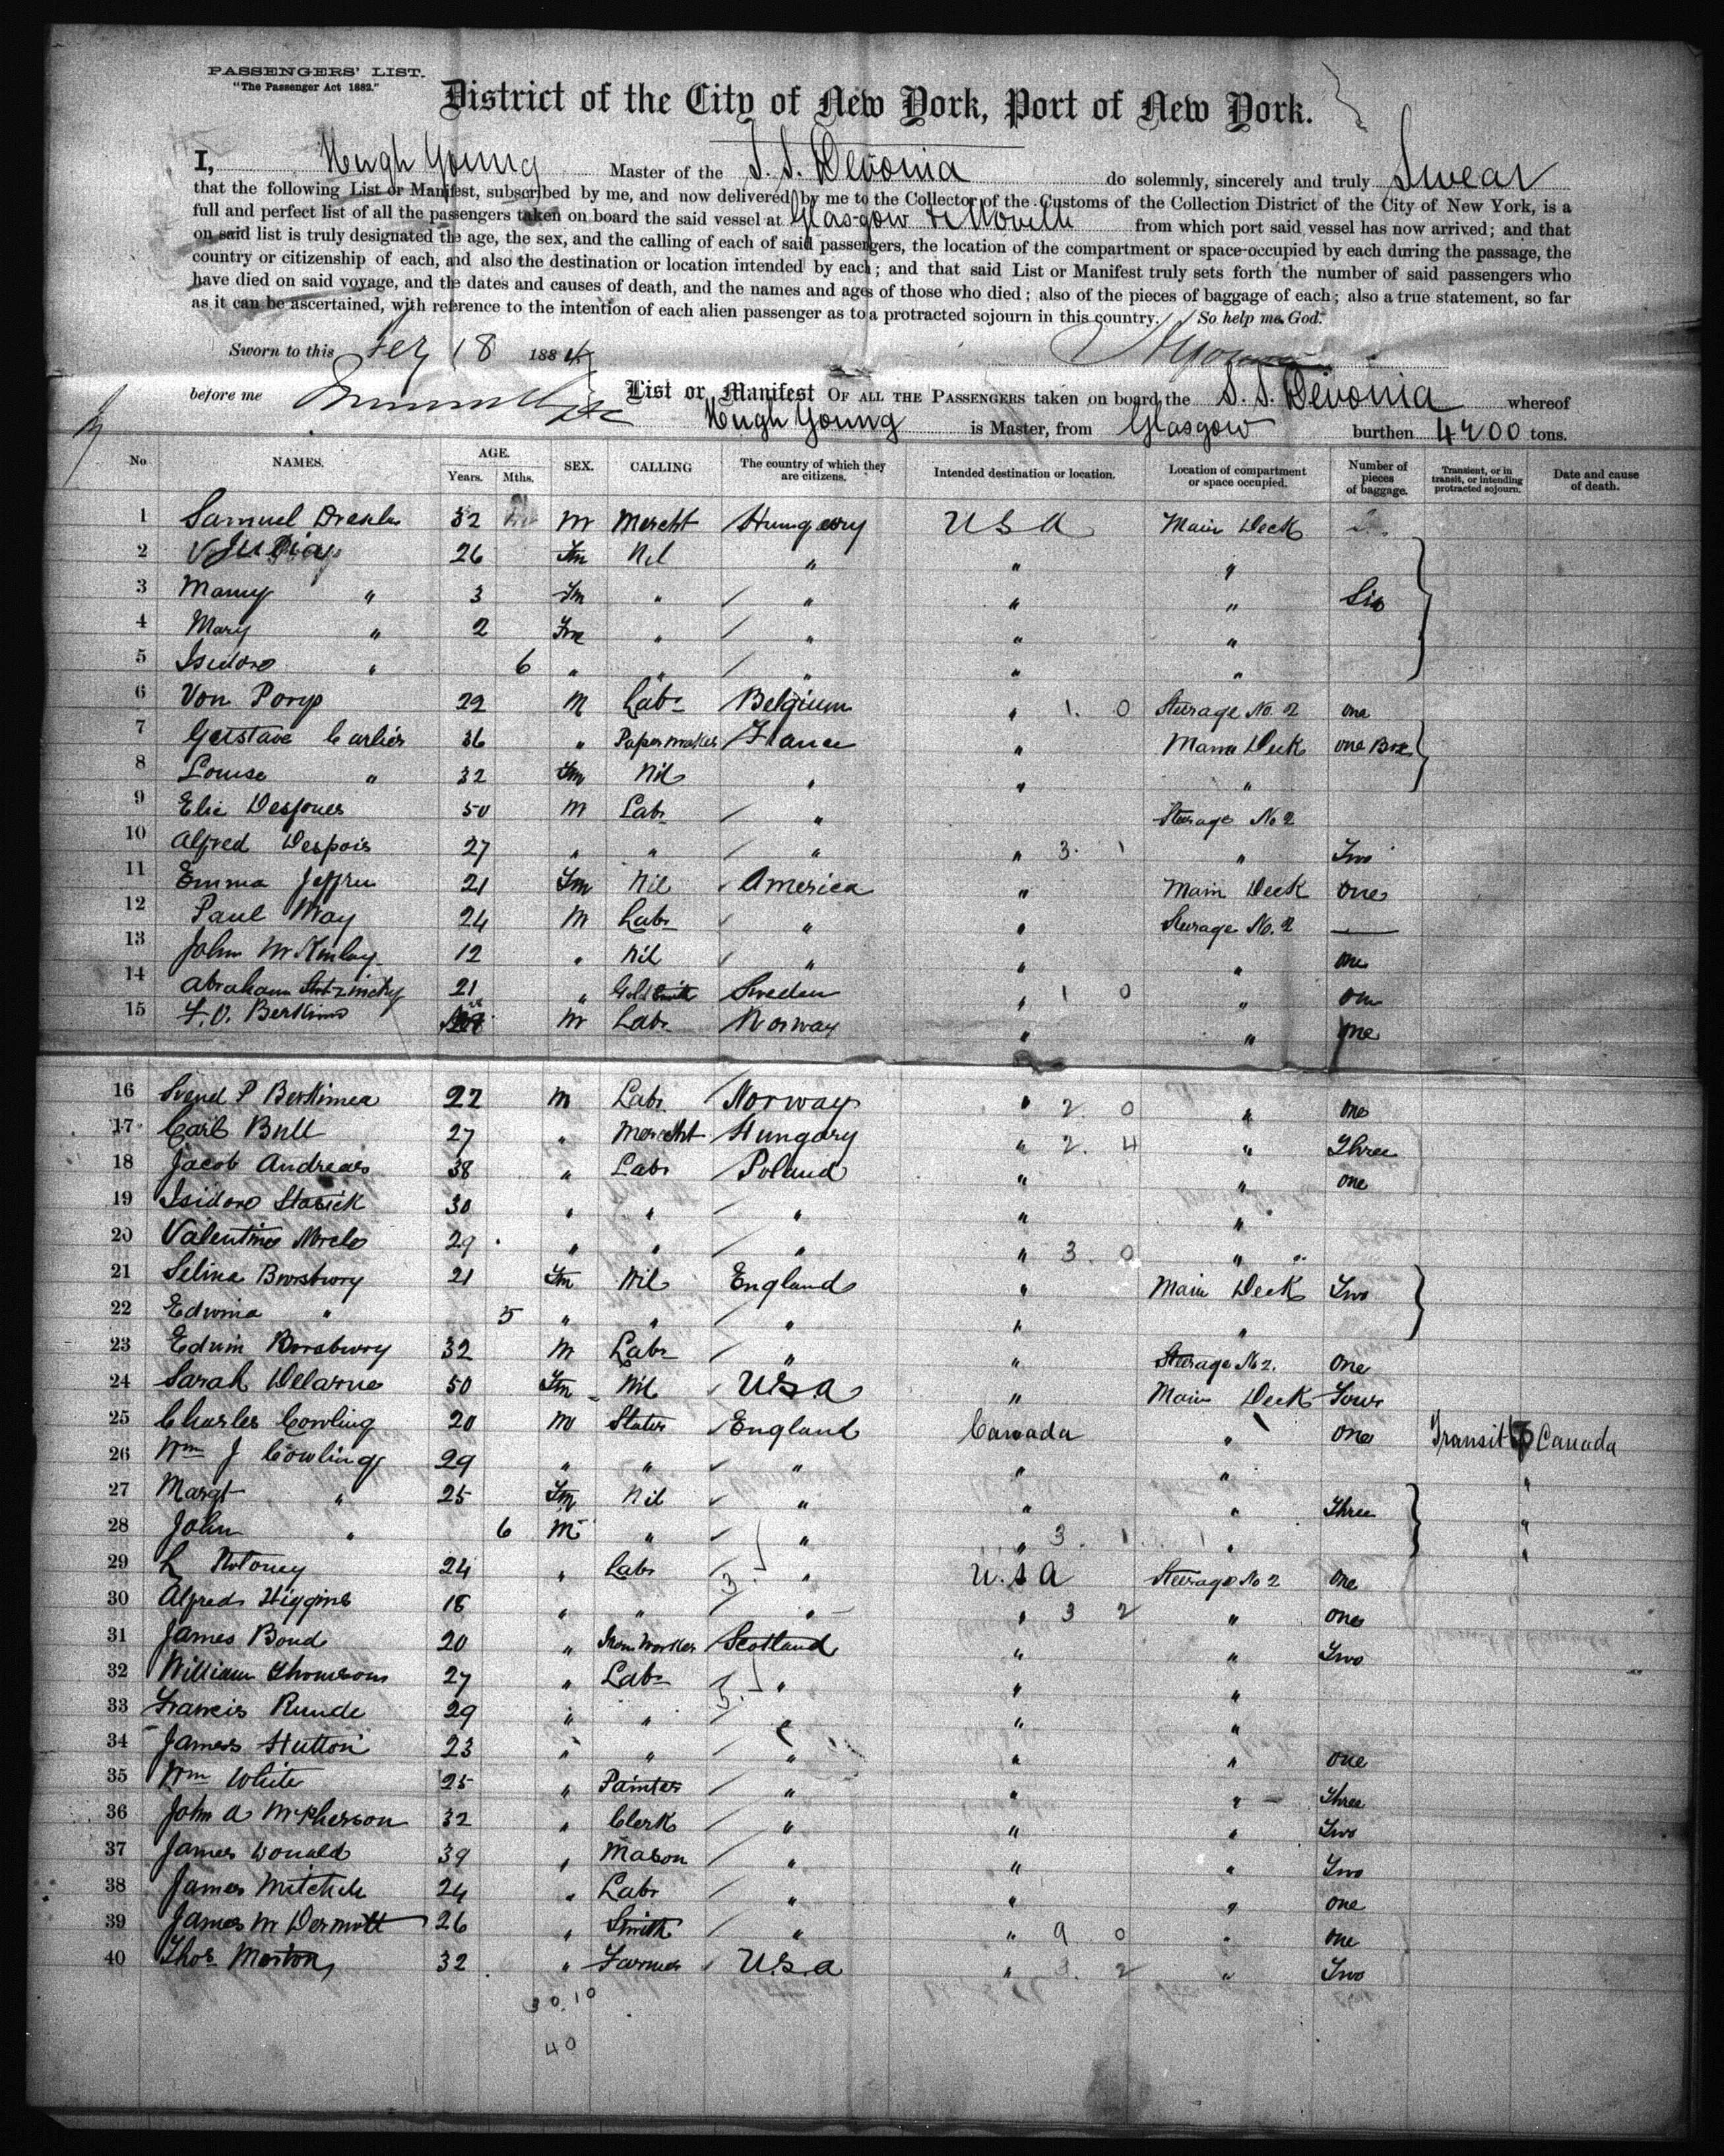 PASSENGERS' LIST.
"The Passenger Act 1882."
District of the City of New York, Port of New York.
I, Hugh Young Master of the S. S. Devonia do solemnly, sincerely and truly Swear
that the following List or Manifest, subscribed by me, and now delivered by me to the Collector of the Customs of the Collection District of the City of New York, is a
full and perfect list of all the passengers taken on board the said vessel at Glasgow & Moville from which port said vessel has now arrived; and that
on said list is truly designated the age, the sex, and the calling of each of said passengers, the location of the compartment or space occupied by each during the passage, the
country or citizenship of each, and also the destination or location intended by each; and that said List or Manifest truly sets forth the number of said passengers who
have died on said voyage, and the dates and causes of death, and the names and ages of those who died; also of the pieces of baggage of each; also a true statement, so far
as it can be ascertained, with reference to the intention of each alien passenger as to a protracted sojourn in this country. So help me God.
Sworn to this Feby 18 1884 HYoung
before me List or Manifest OF ALL THE PASSENGERS taken on board the S. S. Devonia whereof
Hugh Young is Master, from Glasgow burthen 4200 tons.
No NAMES. AGE. Years. Mths. SEX. CALLING The country of which they are citizens. Intended destination or location. Location of compartment or space occupied. Number of pieces of baggage. Transient, or in transit, or intending protracted sojourn. Date and cause of death.
1 Samuel 32 M Mercht Hungary USA Main Deck
2 26 Fm Nil " " "
3 Mamy " 3 Fm " " " " Six
4 Mary " 2 Fm " " " "
5 Isidore " 6 " " " " "
6 Von Poryp 22 M Labr Belgium " 1. 0 Steerage No. 2 one
7 Gustave Carlier 36 " Papermaker France " Main Deck one Box
8 Louise " 32 Fm Nil " " "
9 Elie Desponer 50 M Labr " Steerage No 2
10 Alfred Despois 27 " " " " 3. 1 " Two
11 Emma Jeffru 21 Fm Nil America " Main Deck one
12 Paul May 24 M Labr " " Steerage No. 2 —
13 John McKinlay 12 " Nil " " " one
14 Abraham 21 " Goldsmith Sweden " 1 0 " one
15 F. O. M Labr Norway " " one
16 Svend P Berkimea 22 M Labr Norway " 2. 0 " one
17 Carl Bull 27 " Mercht Hungary " 2. 4 " Three
18 Jacob Andreas 38 " Labr Poland " " one
19 Isidore Stasick 30 " " " " "
20 Valentine 29 " " " " 3. 0 " "
21 Selina Borsbury 21 Fm Nil England " Main Deck Two
22 Edwina " 5 " " " " "
23 Edwin Borsbury 32 M Labr " " Steerage No 2. one
24 Sarah Delarue 50 Fm Nil U.S.A " Main Deck Four
25 Charles Cowling 20 M Slater England Canada " one Transit to Canada
26 Wm J Cowling 29 " " " " " "
27 Margt " 25 Fm Nil " " " Three "
28 John " 6 M " " " 3. 1. 1 " "
29 L 24 " Labr 3. " U.S A Steerage No 2 one
30 Alfred Higgins 18 " " " " 3 2 " one
31 James Bond 20 " Iron Worker Scotland " " Two
32 William Thomson 27 " Labr " " "
33 Francis Runde 29 " " 5. " " "
34 James Hutton 23 " " " " " one
35 Wm White 25 " Painter " " " Three
36 John A McPherson 32 " Clerk " " " Two
37 James Donald 39 " Mason " " " Two
38 James Mitchell 24 " Labr " " " one
39 James McDermott 26 " Smith " " 9 0 " one
40 Thos Morton 32 " Farmer U.S.A " 3. 2 " Two
30.10
40